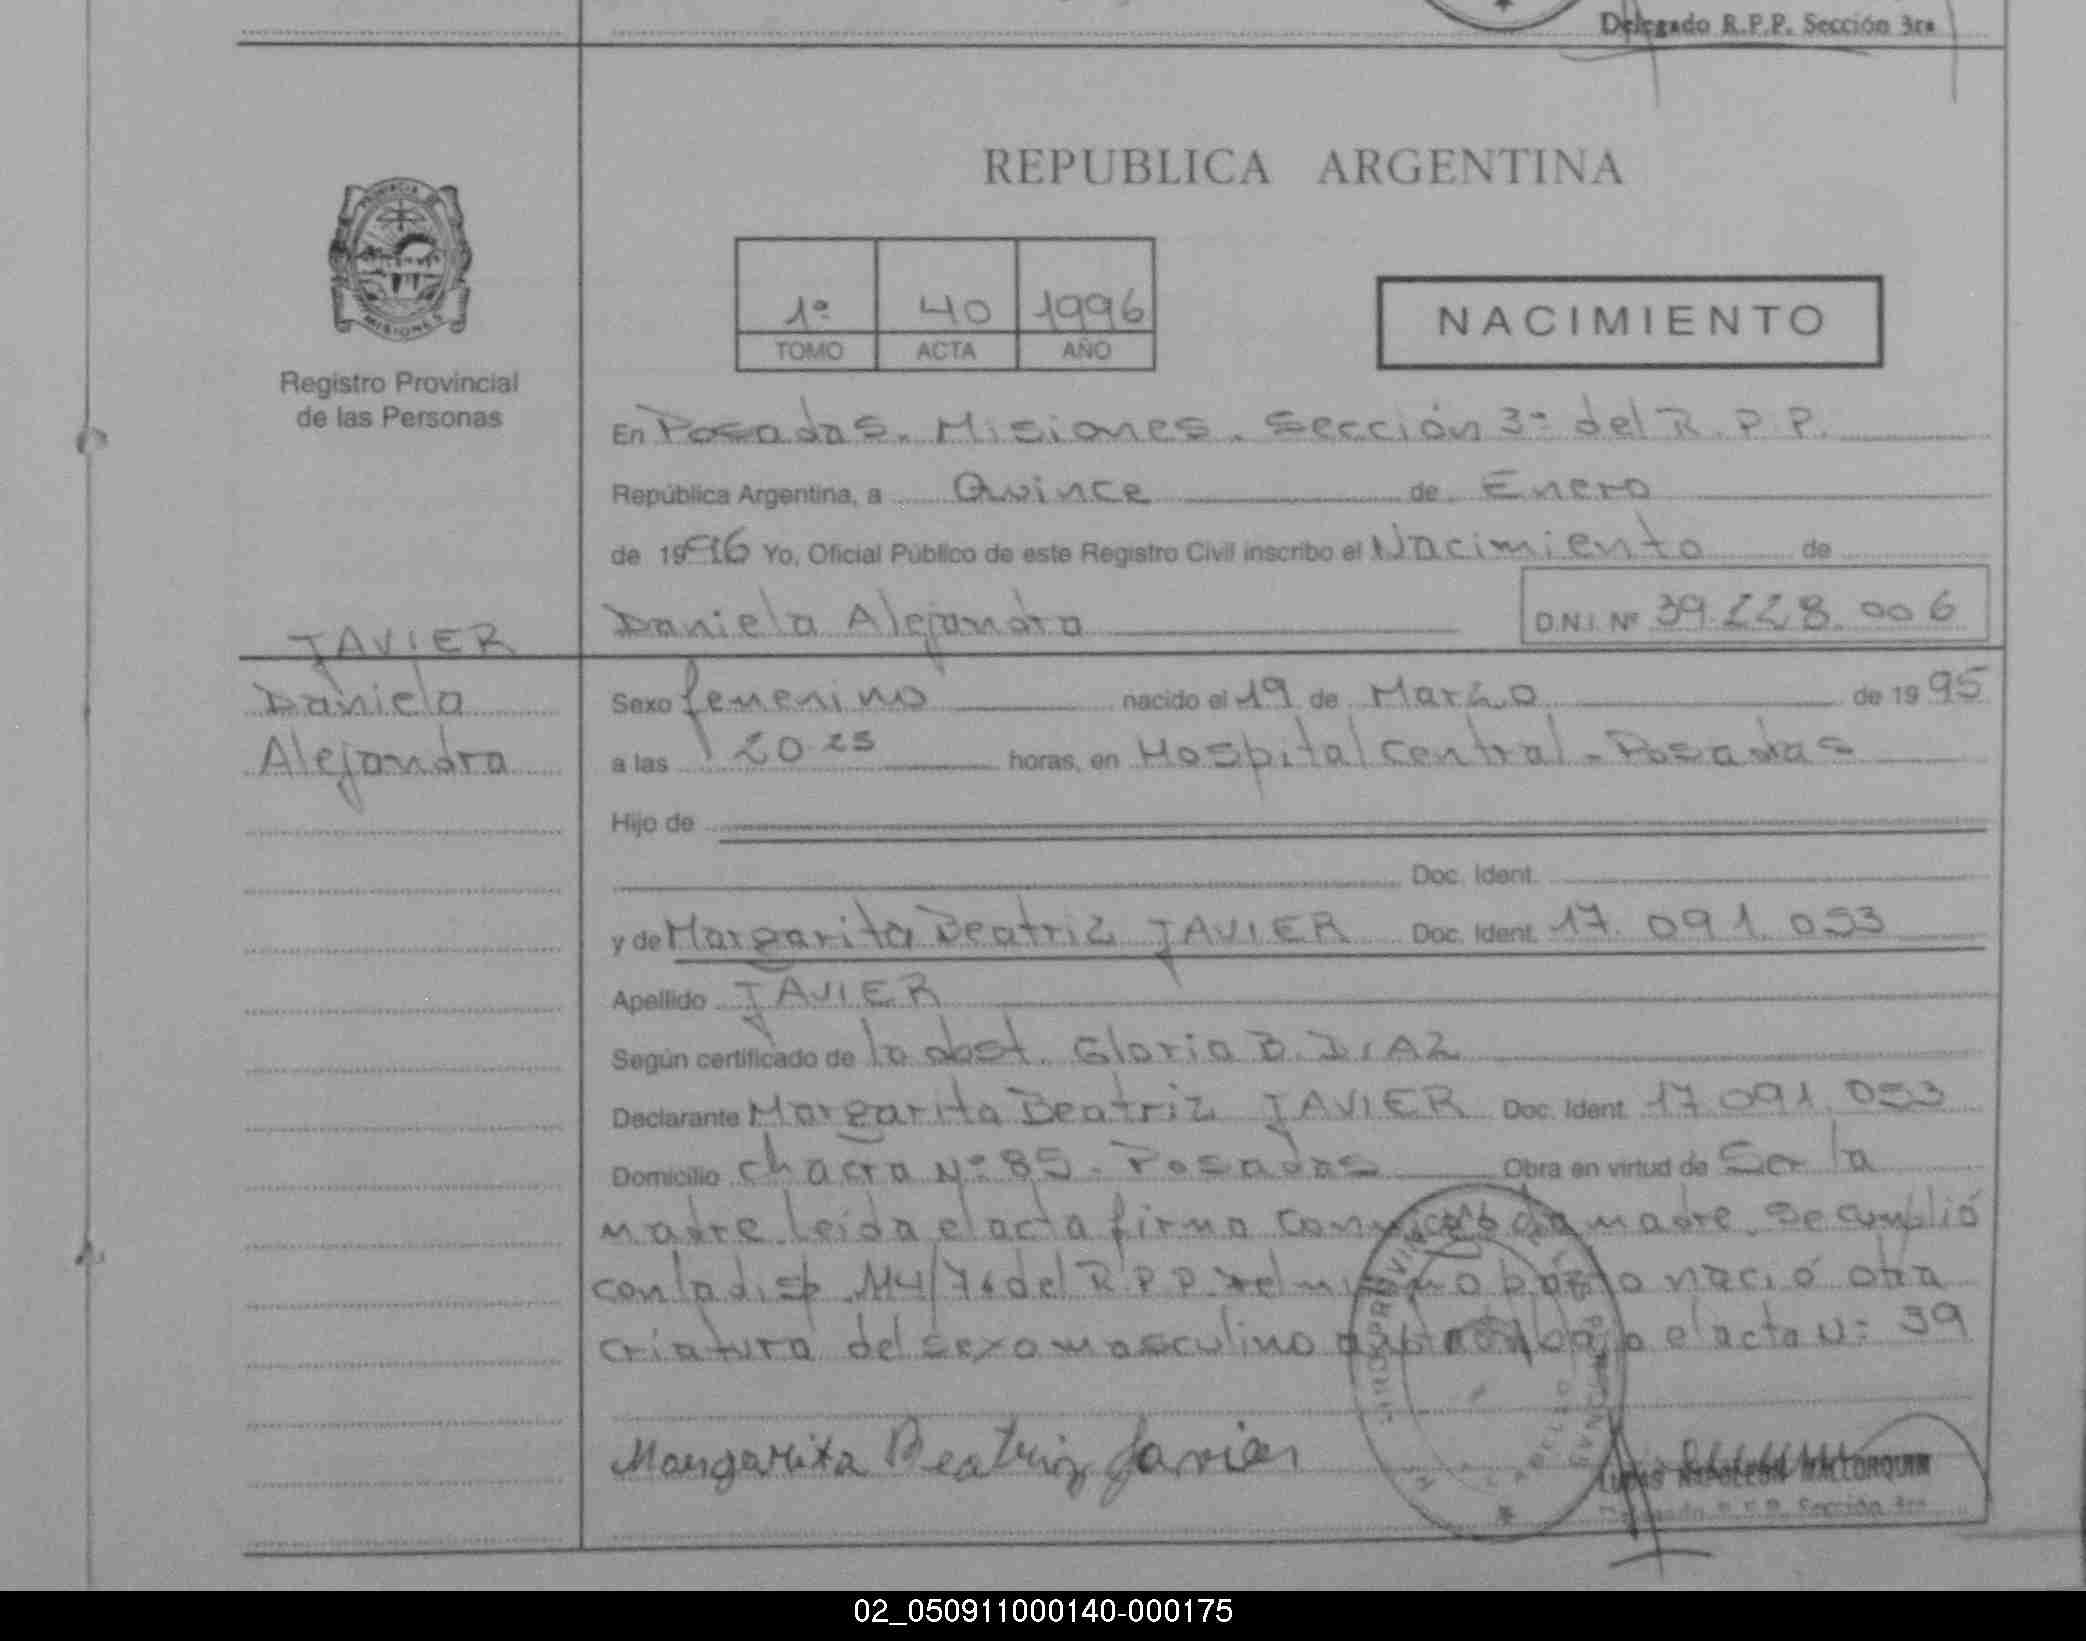 Delegado R.P.P. Sección 3ra
REPUBLICA ARGENTINA
PROVINCIA DE
MISIONES
Registro Provincial
de las Personas
1º 40 1996
TOMO ACTA AÑO
NACIMIENTO
En Posadas. Misiones. Sección 3ª del R.P.P.
República Argentina, a Quince de Enero
de 1996 Yo, Oficial Público de este Registro Civil inscribo el Nacimiento de
Daniela Alejandra D.N.I. Nº 39.228.006
JAVIER
Daniela
Alejandra
Sexo femenino nacido el 19 de Marzo de 1995
a las 20.25 horas, en Hospital Central - Posadas
Hijo de
Doc. Ident.
y de Margarita Beatriz JAVIER Doc. Ident. 17.091.053
Apellido JAVIER
Según certificado de la obst. Gloria B. DIAZ
Declarante Margarita Beatriz JAVIER Doc. Ident. 17.091.053
Domicilio chacra Nº 85 - Posadas Obra en virtud de Ser la
madre. Leída el acta firma conmigo la madre. Se cumplió
con la disp. 114/76 del R.P.P. del mismo parto nació otra
criatura del sexo masculino bajo el acta Nº 39
Margarita Beatriz Javier
Delegado R.P.P. Sección 3ra
02_050911000140-000175